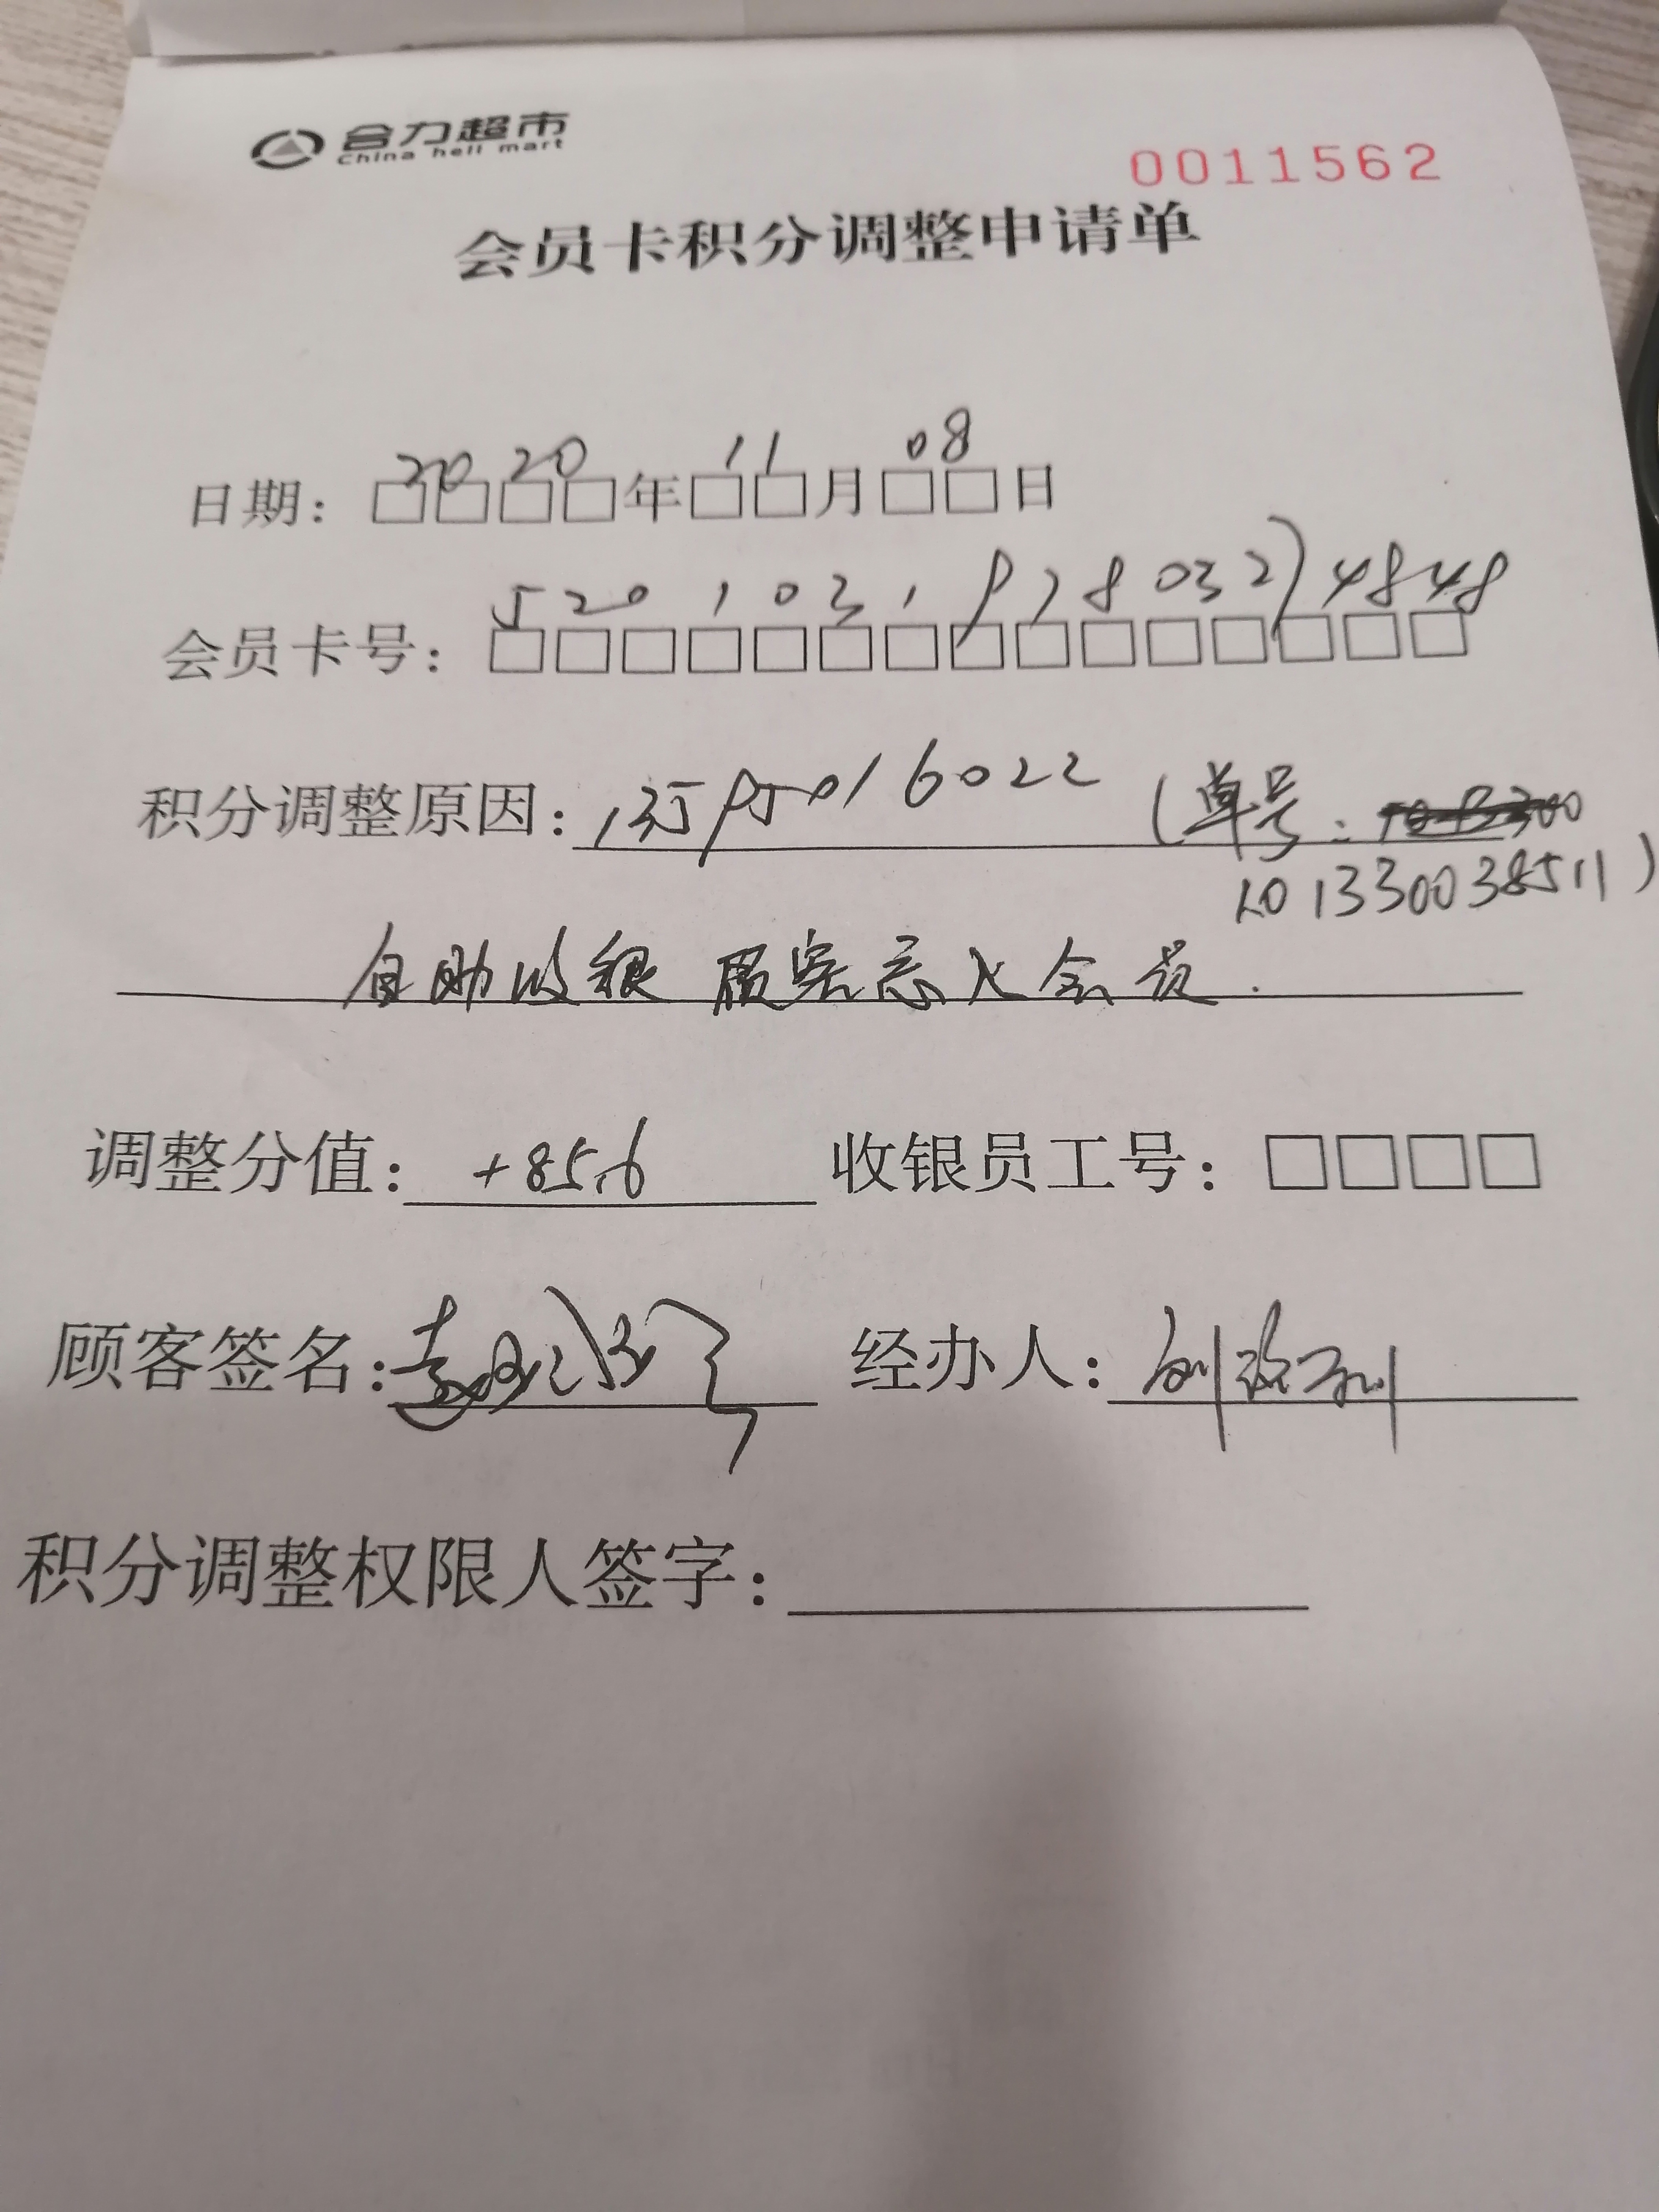 合力超市
China heli mart
0011562
会员卡积分调整申请单
日期: 2020年11月08日
会员卡号:
积分调整原因: 13595016022 (单号:
101330038511)
自助收银 顾客忘入会员.
调整分值: +85.6 收银员工号:
顾客签名: 经办人:
积分调整权限人签字: